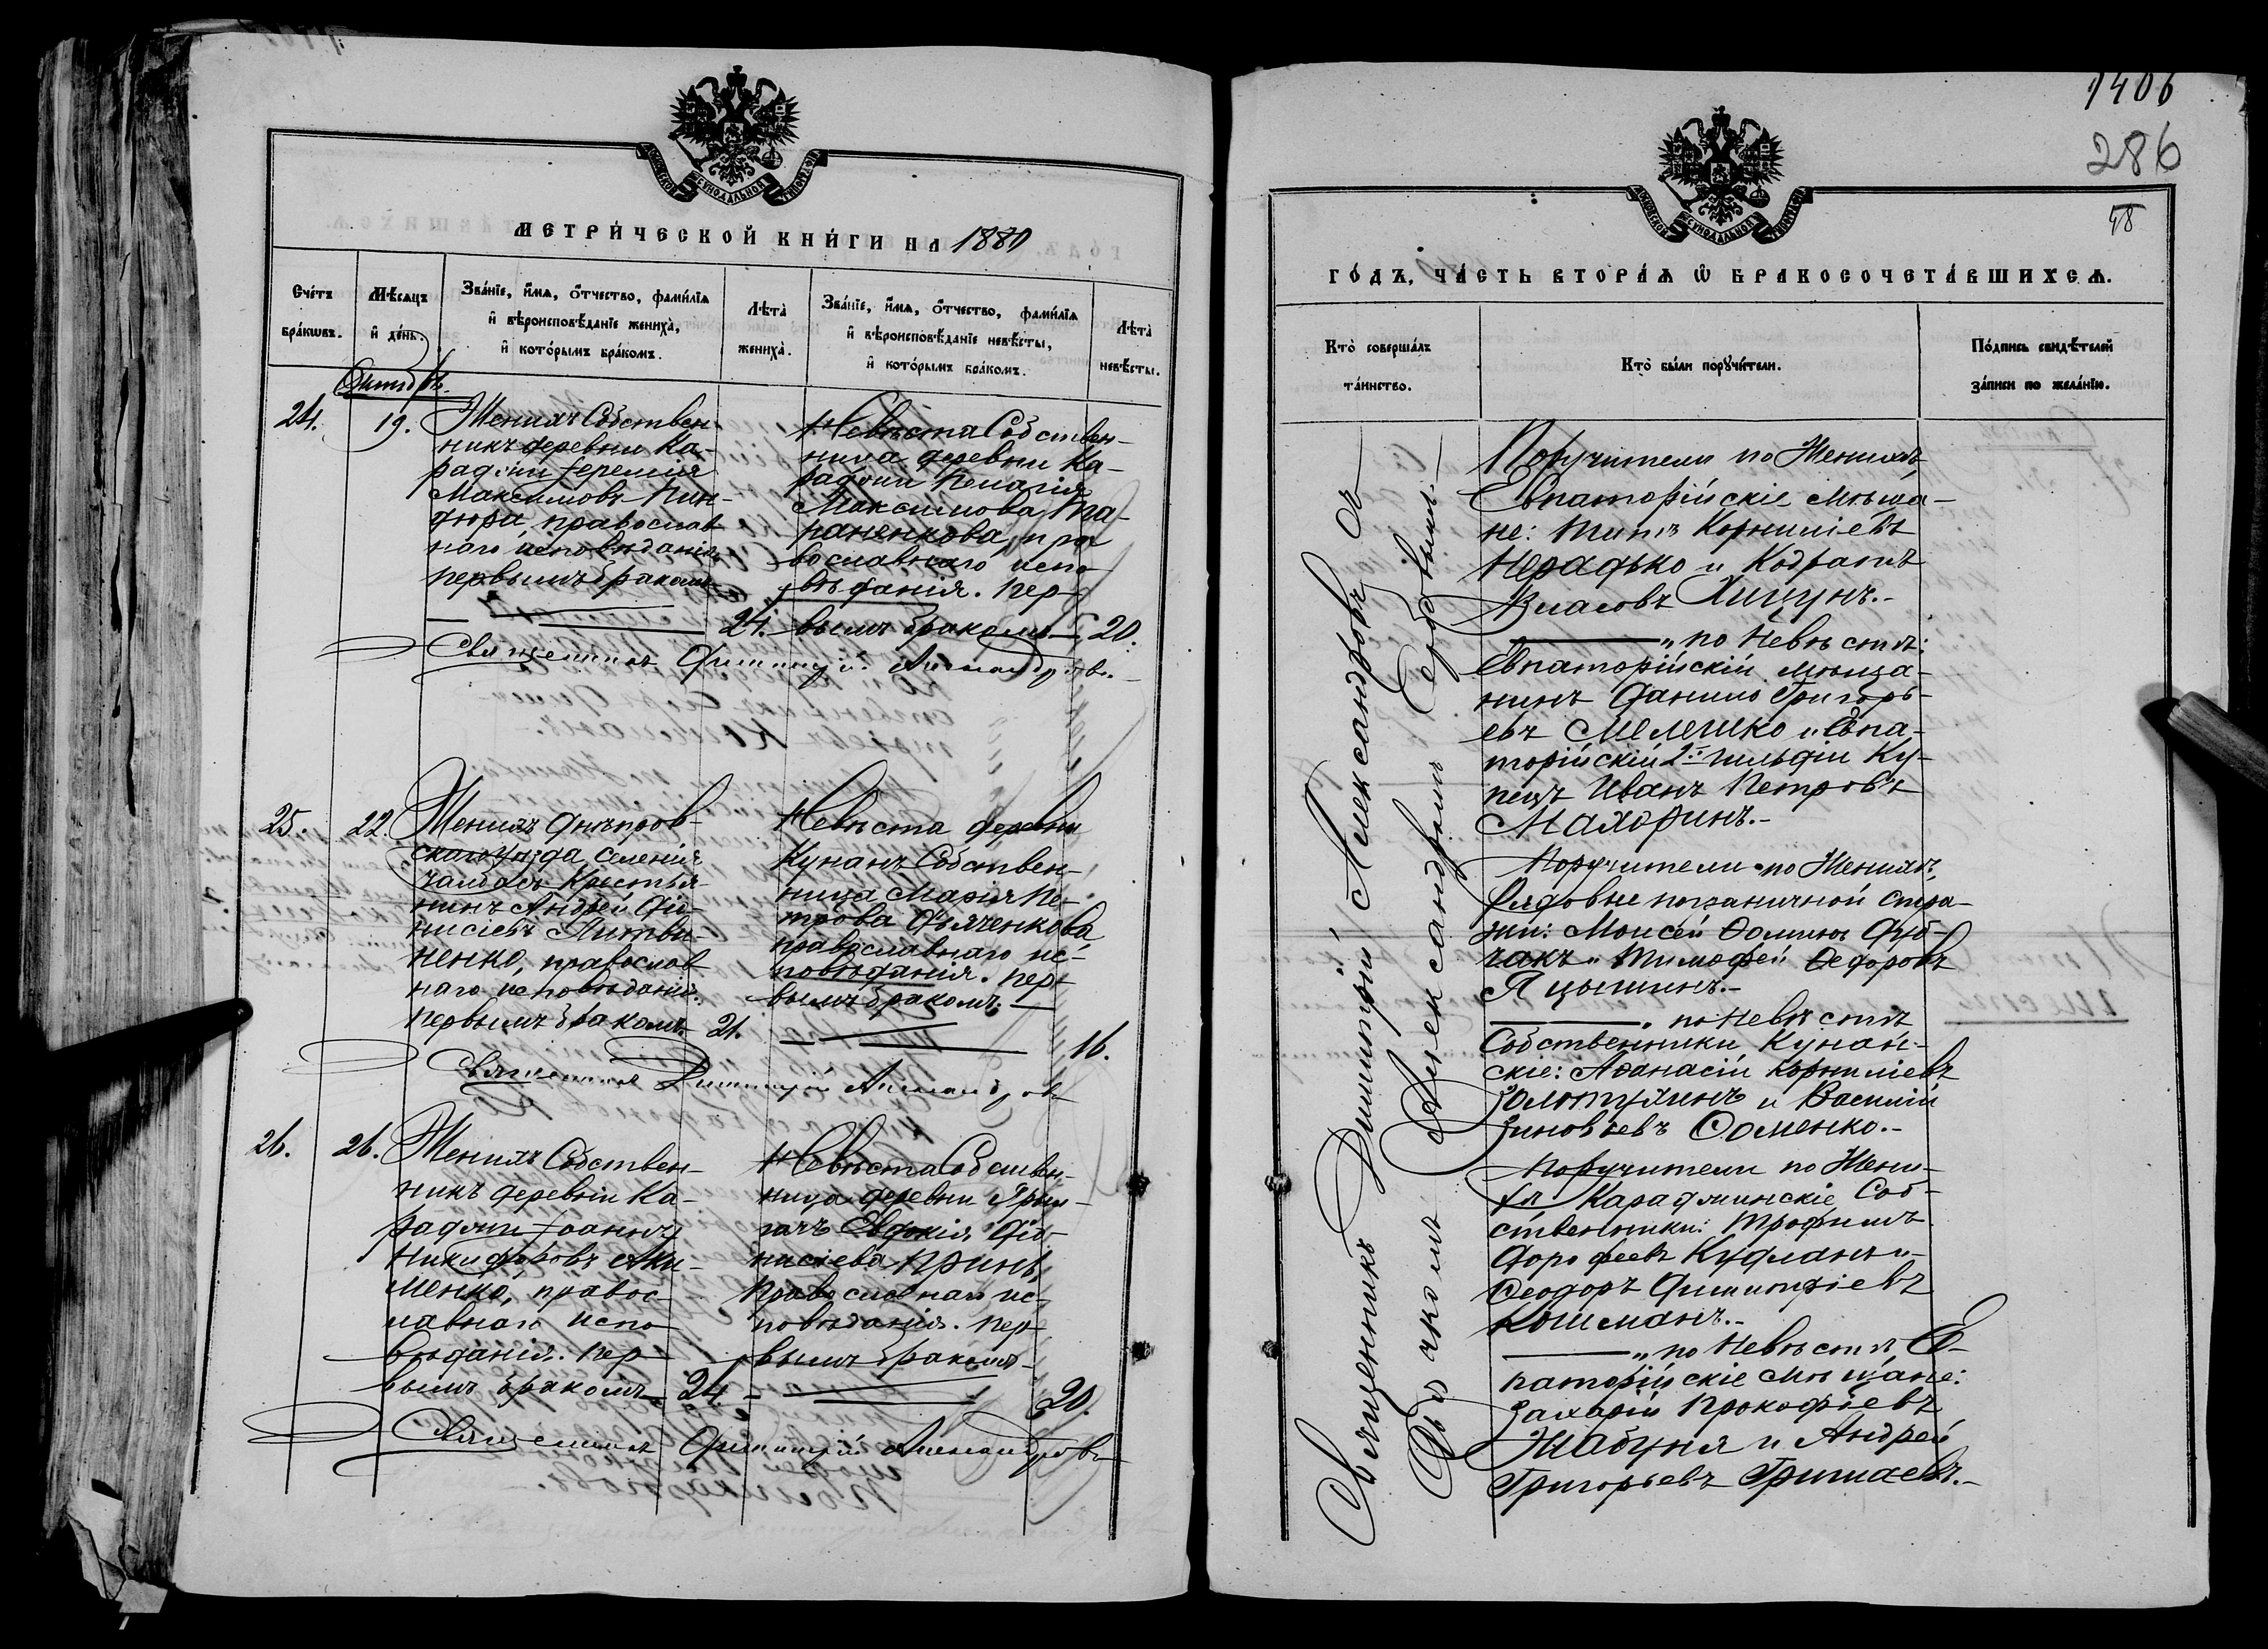 МЕТРИ́ЧЕСКОЙ КНИ́ГИ НА 1880
Сче́тъ бра́кωвъ.
Мѣ́сяцъ и҆ де́нь.
Зва́нїе, и҆́мѧ, о҆́тчество, фами́лїѧ и҆ вѣроисповѣ́данїе жениха̀, и҆ кото́рымъ бра́комъ.
Лѣта̀ жениха̀.
Зва́нїе, и҆́мѧ, о҆́тчество, фами́лїѧ и҆ вѣроисповѣ́данїе невѣ́сты, и҆ кото́рымъ бра́комъ.
Лѣта̀ невѣ́сты.
Октябрь.
24.
19.
Женихъ Собствен-
никъ деревни Ка-
раджи Іеремія
Максимовъ Пин-
дюра, православ
наго исповѣданія
первымъ бракомъ
24.
Невѣста Собствен-
ница деревни Ка-
раджи Пелагія
Максимова Та-
раненкова, пра
вославнаго испо
вѣданія. Пер-
вымъ бракомъ
20.
Священникъ Димитрій Александровъ
25.
22.
Женихъ Днѣпров-
скаго уѣзда селенія
Чалбасъ Крестья-
нинъ Андрей Діо-
нисіевъ Литви-
ненко, православ
наго исповѣданія.
первымъ бракомъ
21.
Невѣста деревни
Кунанъ Собствен-
ница Марія Пе-
трова Дьяченкова
православнаго ис-
повѣданія. Пер-
вымъ бракомъ.
16.
Священникъ Димитрій Александровъ
26.
26.
Женихъ Собствен-
никъ деревни Ка-
раджи Іоаннъ
Никифоровъ Аки-
менко, правос-
лавнаго испо
вѣданія. Пер-
вымъ бракомъ
24.
Невѣста Собствен-
ница деревни Ярыл-
гачъ Евдокія Діо-
нисіева Принь,
Православнаго ис-
повѣданія. Пер-
вымъ бракомъ
20.
Священникъ Димитрій Александровъ
1406
286
48
ГО́ДЪ, ЧА́СТЬ ВТОРА́Ѧ Ѽ БРАКОСОЧЕТА́ВШИХСѦ.
Кто̀ соверша́лъ та́инство.
Кто̀ бы́ли порꙋчи́тели.
По́дпись свидѣ́телей за́писи по жела́нїю.
Священникъ Димитрій Александровъ съ
Дьячкомъ Александромъ
Поручители по Женихѣ
Евпаторійскіе Мѣща-
не: Титъ Корниліевъ
Нерадько и Кодратъ
Власовъ Хицунъ.-
" по Невѣстѣ:
Евпаторійскій мѣща-
нинъ Данило Григорь-
евъ Мелешко и Евпа-
торійскій 2й гильдіи Ку-
пецъ Иванъ Петровъ
Махоринъ.-
Поручители по Женихѣ,
Рядовые пограничной стра-
жи: Моисей Ѳоминъ Дуб-
чакъ и Тимофей Ѳедоровъ
Яцышинъ.-
" по Невѣстѣ
Собственники Кунан-
скіе: Аѳанасій Корниліевъ
Золотухинъ и Василій
Зиновьевъ Ѳоменко.-
Поручители по Жени-
хѣ Караджинскіе Соб-
ственники: Трофимъ
Дорофеевъ Кудланъ и
Ѳеодоръ Димитріевъ
Кошманъ.-
" по Невѣстѣ, Ев-
паторійскіе Мѣщане:
Захарій Прокофіевъ
Жабуня и Андрей
Григорьевъ Гришаевъ.-